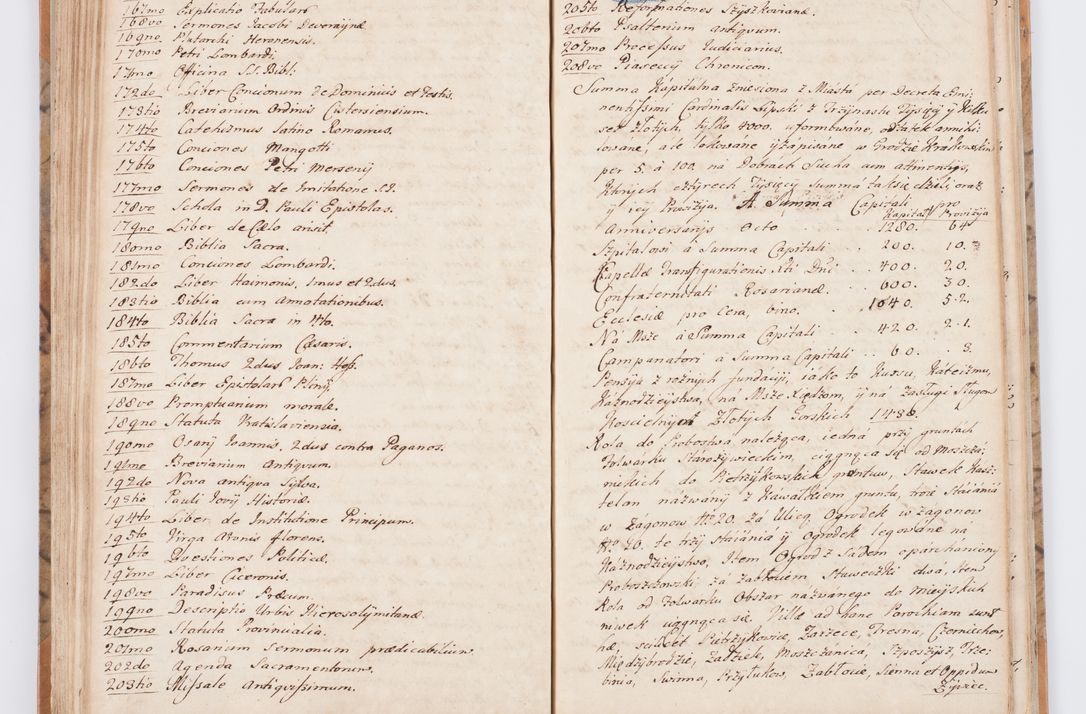 167mo Explicatio Tabularū
168vo Sermones Jacobi Devoragine
169no Plutarchi Heronensis.
170mo Petri Lombardi
171mo Officina S.S. Bibl:
172do Liber Concionum de Dominicis et Festis.
173tio Breviarium Ordinis Cisterciensium.
174to Catehizmus Latino Romanus.
175to Conciones Mangotti
176to Conciones Petri Mersenij
177mo Sermones de Imitatione
178vo Schola in D. Pauli Epistolas.
179no Liber de Cælo
180mo Biblia Sacra.
181mo Conciones Lombardi.
182do Liber Haimonis, 1mus et 2dus.
183tio Biblia cum Annotationibus.
184to Biblia Sacra in 4to.
185to Commentarium Cæsaris.
186to Thomus 2dus Joan: Hofs.
187mo Liber Epistolarū Plinij
188vo Promptuarium morale.
189no Statuta Vratislaviensia.
190mo Osarij Joannis 2dus contra Paganos.
191mo Breviarium Antiqvum.
192do Nova antiqva Sylva.
193tio Pauli Jovij Historiæ.
194to Liber de Institutione Principum.
195to Virga Aronis florens.
196to Qvestiones Politicæ.
197mo Liber Ciceronis.
198vo Paradisus Precum.
199no Descriptio Urbis Hierosolÿmitanæ.
200mo Statuta Provincialia.
201mo Rosarium Sermonum prædicabilium
202do Agenda Sacramentorum.
203tio Missale Antiqvissimum.
205to Reformationes Szyszkovianæ.
206to Psalterium antiqvum.
207mo Processus Iudiciarius.
208vo Piasecij Chronicon.
Summa Kapitalna zniesiona z Miasta per Decreta Emi:
nentissimi Cardinalis Lipski z Trzynastu Tysięcy y Kilku
set Złotych, tylko 4000. uformowane, ostatek annihi:
lowane, ale lokowane y zapisane w Grodzie Krakowskim
per 5. à 100. na Dobrach Sucha cum attinentijs,
Ktorych cztyrech Tysięcy Summa tak się dzieli, oraz
y iey Prowizya. A Summa Capitali pro
Kapitał Prowizya
Anniversarijs Octo . . 1280. 64
Szpitalowi à Summa Capitali . . 200. 10.
Capellæ Transfigurationis Xti Dni . . 400. 20.
Confraternitati Rosarianæ . . 600. 30.
Ecclesiæ pro Cera, vino. . 1040. 52.
Na Msze à Summa Capitali . . 420. 21.
Campanatori à Summa Capitali . . 60. 3.
Pensya z rożnych fundacyi, iako to Kursu, Kateizmu,
Kaznodzieystwa, na Msze Xiędzom, y na Zasługi Sługom
Koscielnych Złotych Gorskich 1486.
Rola do Probostwa należąca, iedna przy gruntach
Folwarku Starożywieckim, ciągnąca się od Moszcza:
nickich do Pietrzykowskich gruntow, Stawek Kasz:
telan nazwany z Kawałkiem gruntu, trzie Staiania
w Zagonow Nro 20. Za Ulicą Ogrodek w zagonow
Nro 20. te trzy staiania y Ogrodek legowane na
Kaznodzieystwo, Item Ogrod z Sadem oparchaniony
Proboszczowski za Zabłociem Staweczki dwa, item
Rola od Folwarku Obszar nazwanego do mieyskich
niwek ciągnąca się. Villæ ad hanc Parochiam sunt
hæ, scilicet Pietrzykowice, Zarzece, Tresna, Czernichow,
Międzybrodzie, Zadziele, Moszczanica, Trze:
binia, Swinna, Przyłukow, Zabłocie, Sienna et Oppidum
Zywiec.